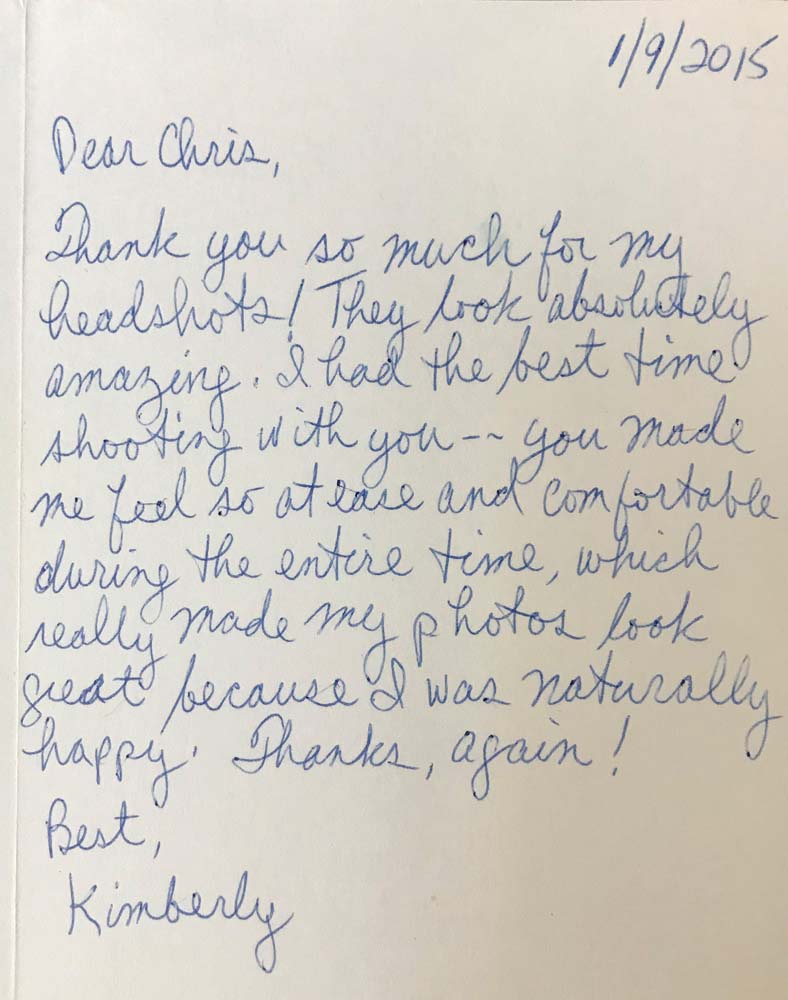 1/9/2015
Dear Chris,
Thank you so much for my
headshots! They look absolutely
amazing. I had the best time
shooting with you -- you made
me feel so at ease and comfortable
during the entire time, which
really made my photos look
great because I was naturally
happy. Thanks, again!
Best,
Kimberly